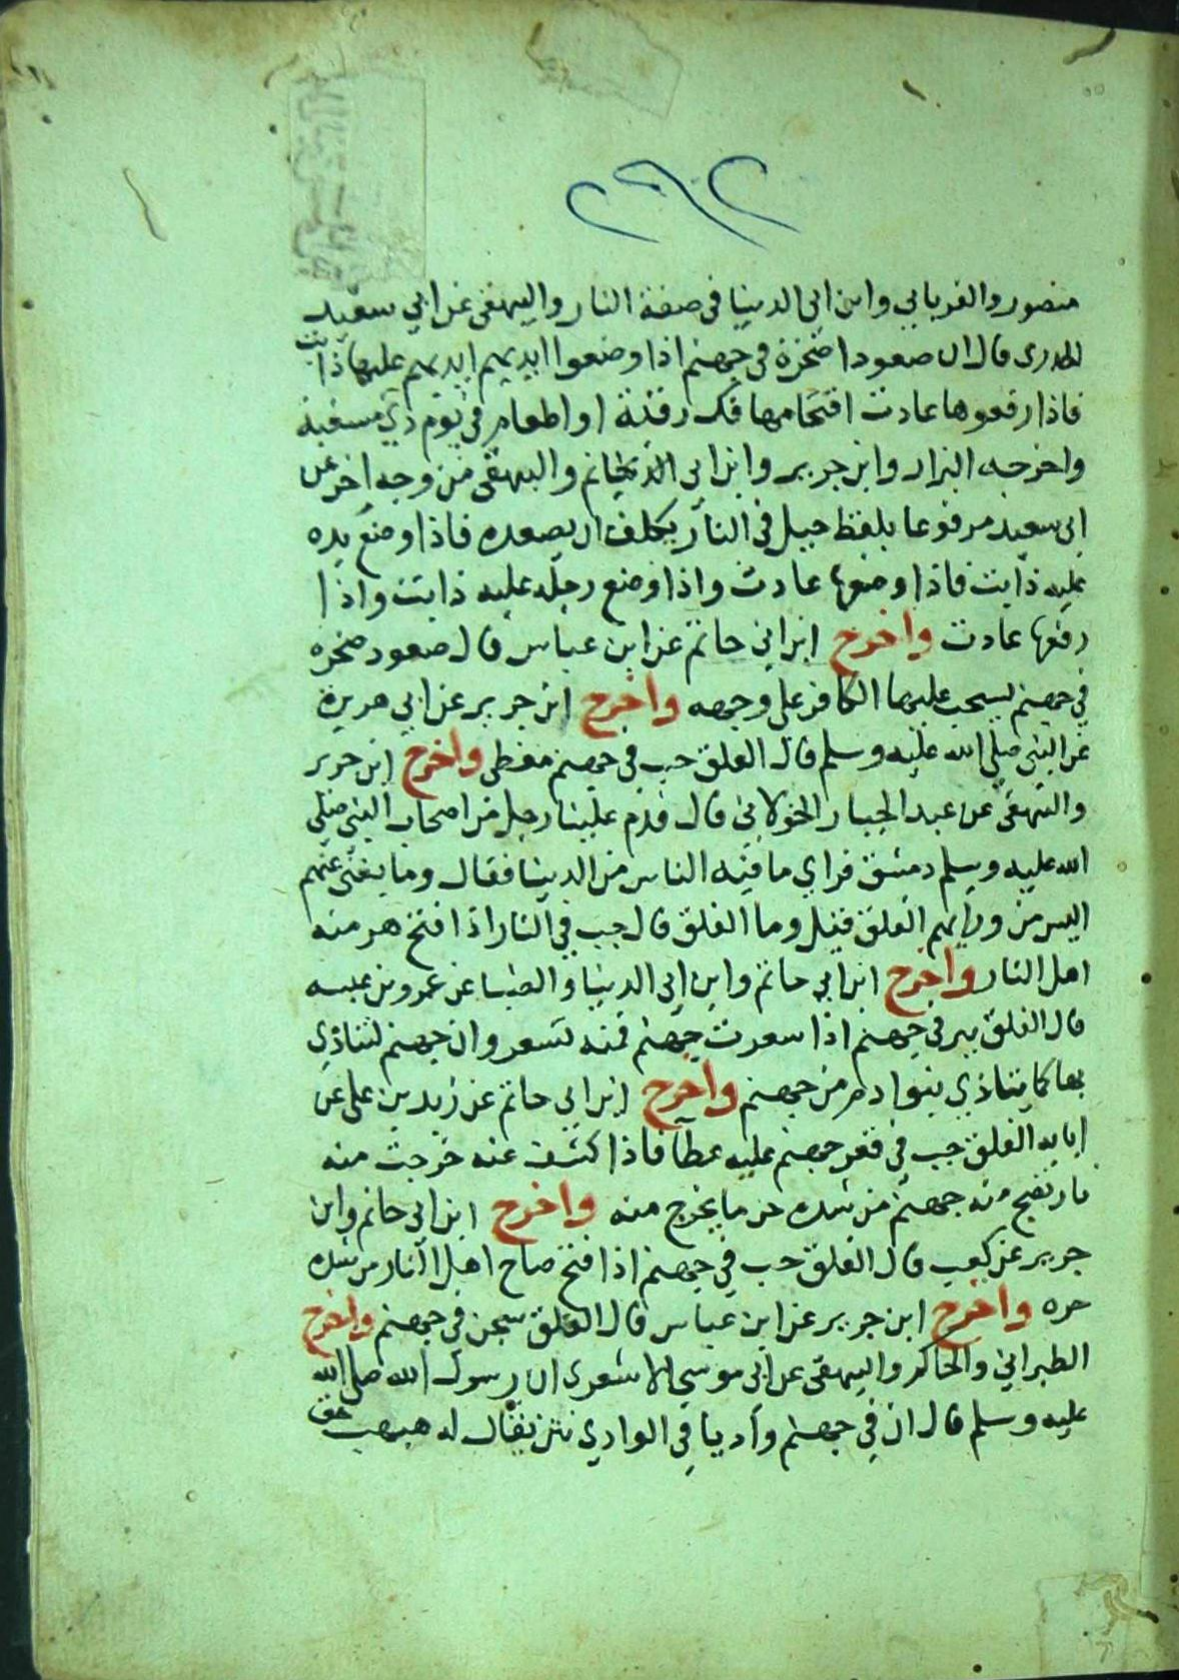 منصور والفريابي وابن ابي الدينا في صفة النار والبيهقي عن ابي سعيد
الخدري قال ان صعودا صخرة في جهنم اذا وضعوا ايديهم ايديهم عليها ذابت
فاذا رفعوها عادت اقتحامها فك رقبة او اطعام في يوم ذي مسغبة
واخرجه البزار وابن جرير وابن ابي حاتم والبيهقي من وجه اخر عن
ابي سعيد مرفوعا بلفظ جبل في النار يكلف ان يصعده فاذا وضع يده
عليه ذابت فاذا وضعها عادت واذا وضع رجله عليه ذابت واذا
رفعها عادت واخرج ابن ابي حاتم عن ابن عباس قال صعود صخرة
في جهنم يسحب عليها الكافر على وجهه واخرج ابن جرير عن ابي هريرة
عن النبي صلى الله عليه وسلم قال الفلق جب في جهنم مغطى واخرج ابن جرير
والبيهقي عن عبد الجبار الخولاني قال قدم علينا رجل من اصحاب النبي صلى
الله عليه وسلم دمشق فراي ما فيه الناس من الدينا فقال وما يغنى عنهم
اليس من ورايهم الفلق قيل وما الفلق قال جب في النار اذا فتح هر منه
اهل النار واخرج ابن ابي حاتم وابن ابي الدينا عن عمرو بن عبسه
قال الفلق بير في جهنم اذا سعرت جهنم فمنه تسعر وان جهنم لتتاذي
بها كما يتاذي بنوا دم من جهنم واخرج ابن ابي حاتم عن زيد بن علي عن
ابايه الفلق جب في قعر جهنم عليه غطا فاذا كشف عنه خرجت منه
نار تضج منه جهنم من شده حر ما يخرج منه واخرج ابن ابي حاتم وابن
جرير عن كعب قال الفلق جب في جهنم اذا فتح صاح اهل النار من شده
حره واخرج ابن جرير عن ابن عباس قال الفلق سجن في جهنم واخرج
الطبراني والحاكم والبيهقي عن ابي موسى الاشعري ان رسول الله صلى الله
عليه وسلم قال ان في جهنم واديا في الوادي بئر يقال له هبهب حق